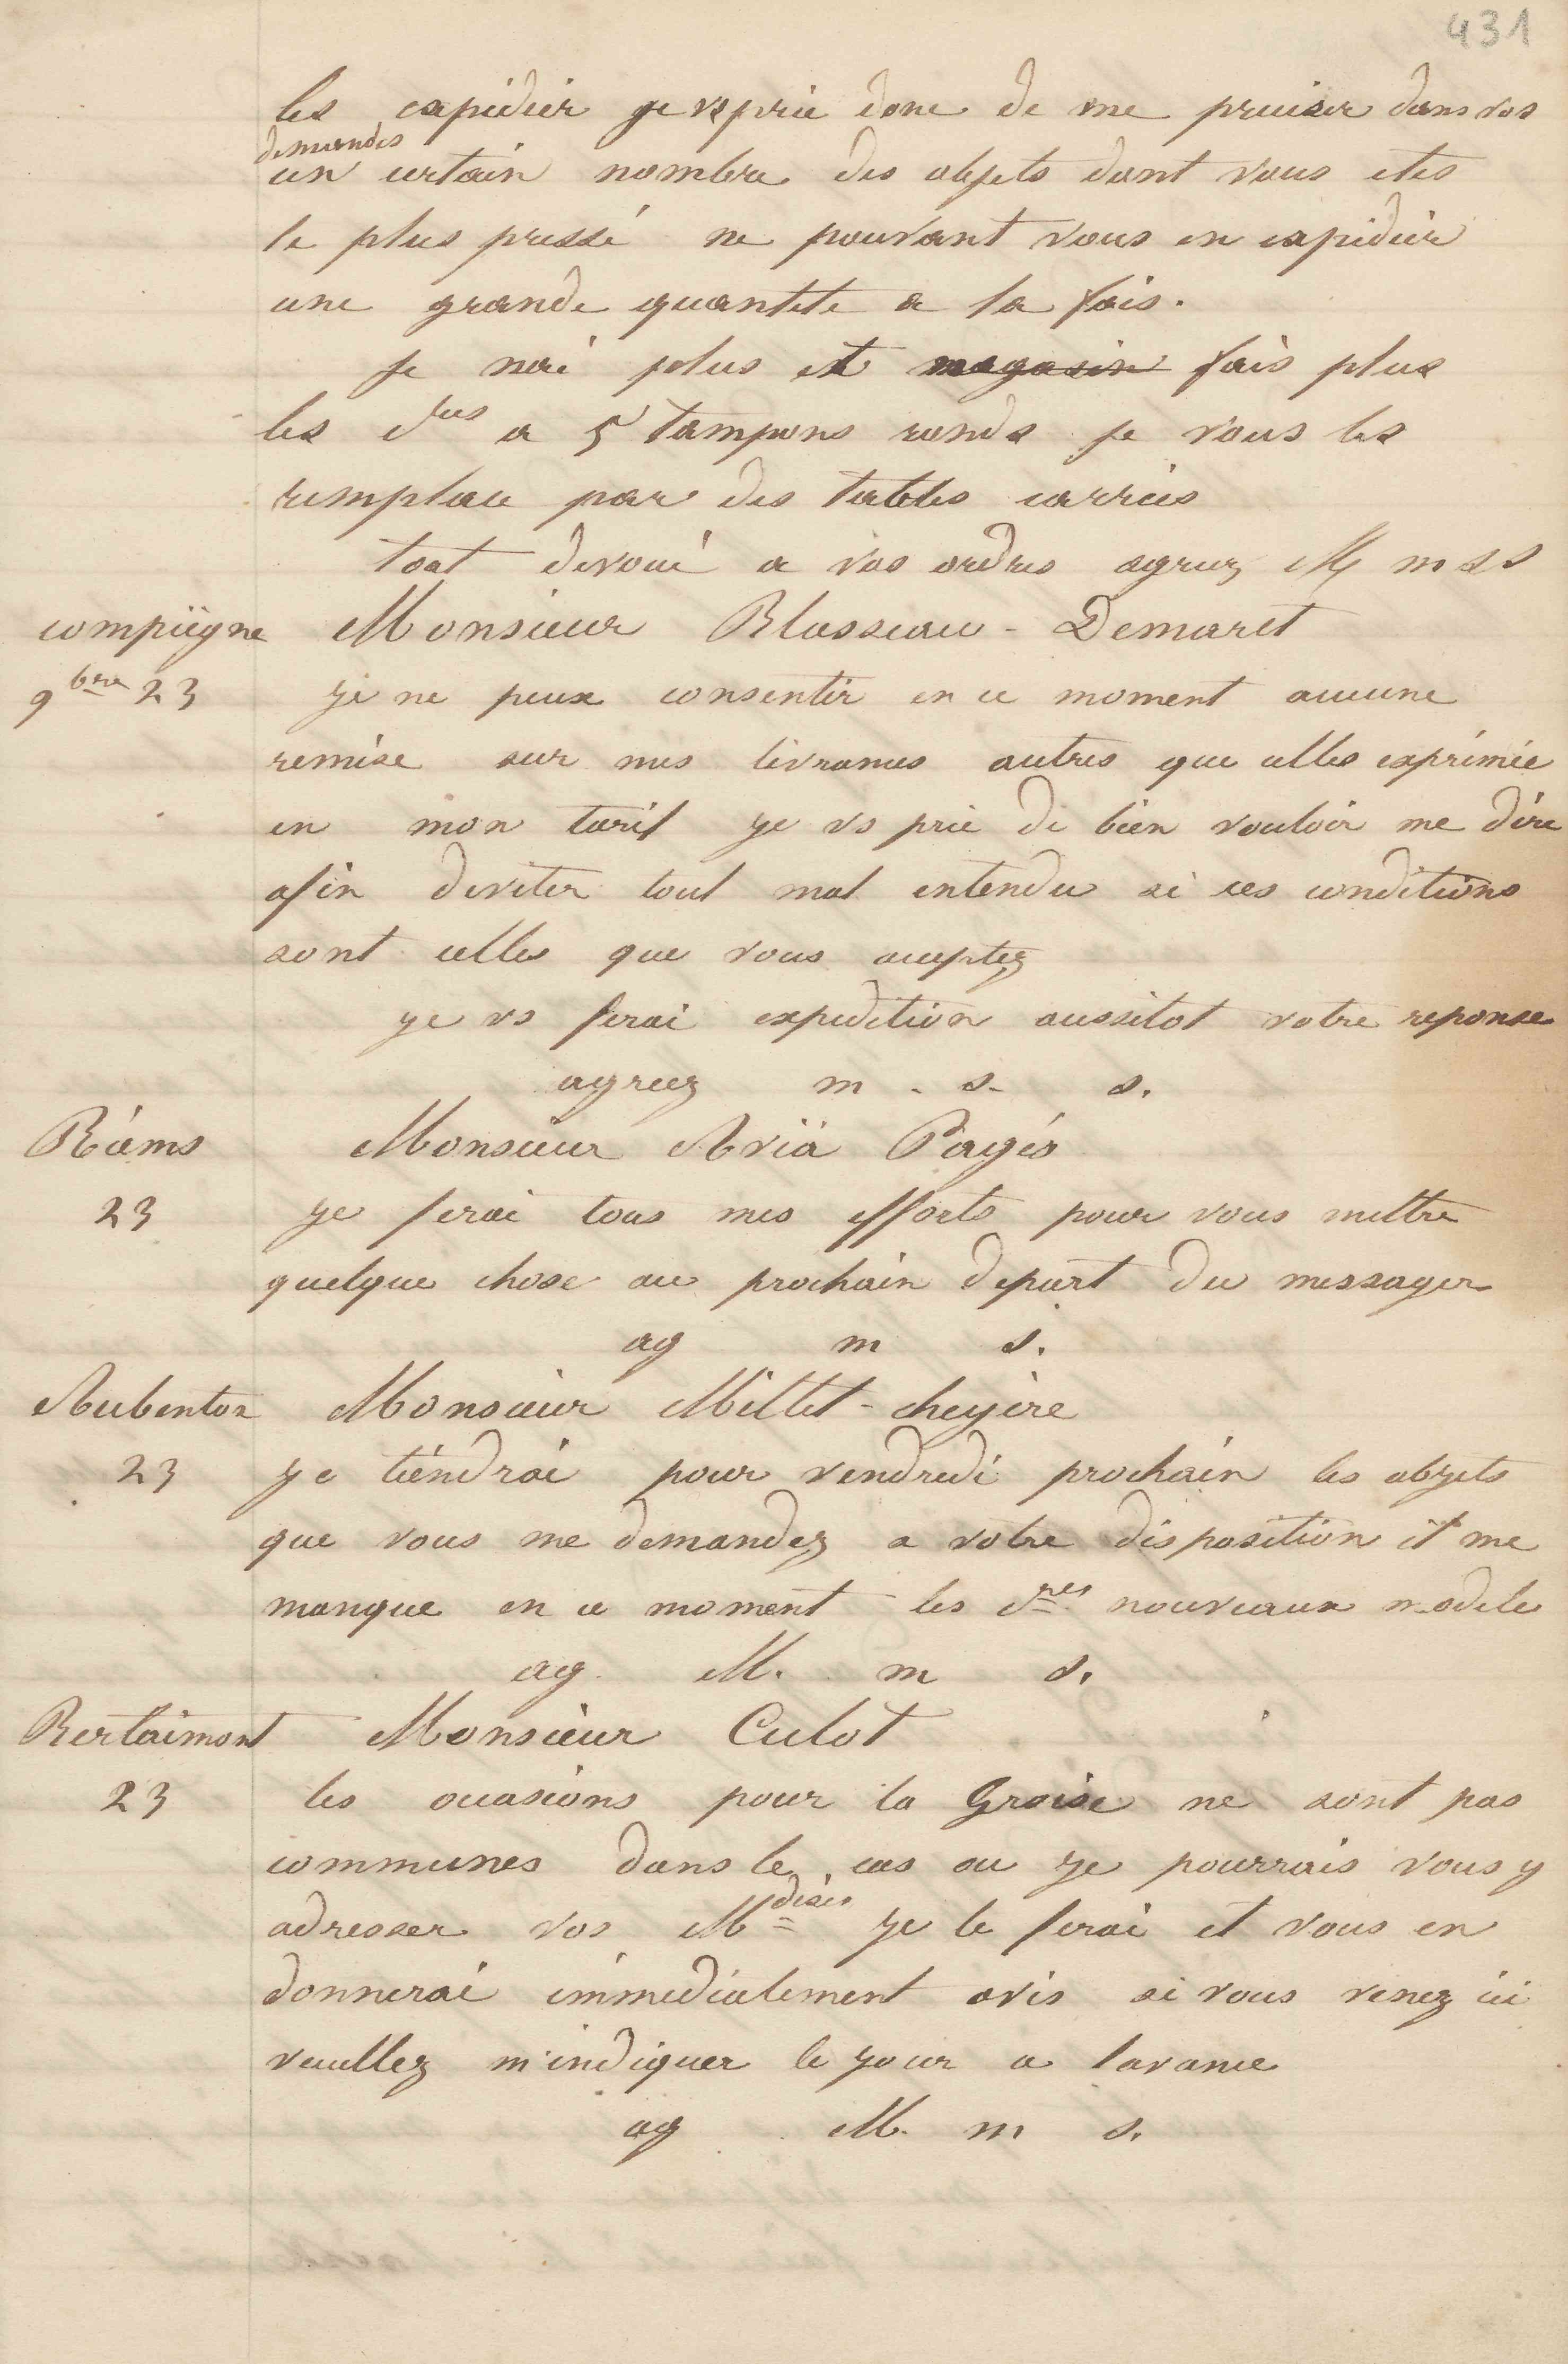 431
les expedier je vs prie donc de me preciser dans vos
demandes
un certain nombre des objets dont vous etes
le plus pressé ne pouvant vous en expedier
une grande quantete a la fois.
je nai plus et magasin fais plus
les dres a 5 tampons ronds je vous les
remplace par des tables carrées
tout devoué a vos ordres agreez M m ss
compiègne Monsieur Blasseau - Demaret
9bre 23 je ne peux consentir en ce moment aucune
remise sur mes livrances autres que celles exprimée
en mon tarif je vs prie de bien vouloir me dire
afin deviter tout mal entendu si ces conditions
sont celles que vous acceptez
je vs ferai expedition aussitot votre reponse
agreez m. s. s.
Reims Monsieur Pagés
23 je ferai tous mes efforts pour vous mettre
quelque chose au prochain depart du messager
ag m s.
Aubenton Monsieur Millet - cheyère
23 je tiendrai pour vendredi prochain les objets
que vous me demandez a votre disposition il me
manque en ce moment les dres nouveaux modele
ag. M. m s.
Bertaimont Monsieur Culot
23 les occasions pour la Groise ne sont pas
communes dans le cas ou je pourrais vous y
adresser vos Mdises je le ferai et vous en
donnerai immediatement avis si vous venez ici
veuillez m'indiquer le jour a lavance
ag M. m s.